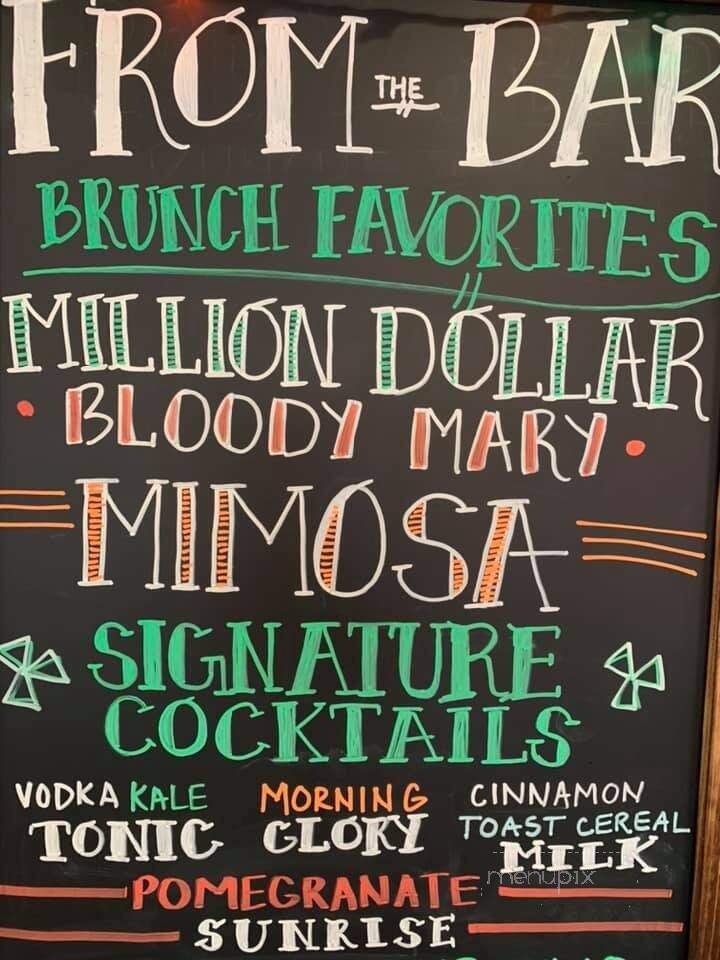 FROM THE BAR
BRUNCH FAVORITES
MILLION DOLLAR
BLOODY MARY
MIMOSA
SIGNATURE
COCKTAILS
VODKA KALE
TONIC
MORNING
GLORY
CINNAMON
TOAST CEREAL
MILK
menupix
POMEGRANATE
SUNRISE